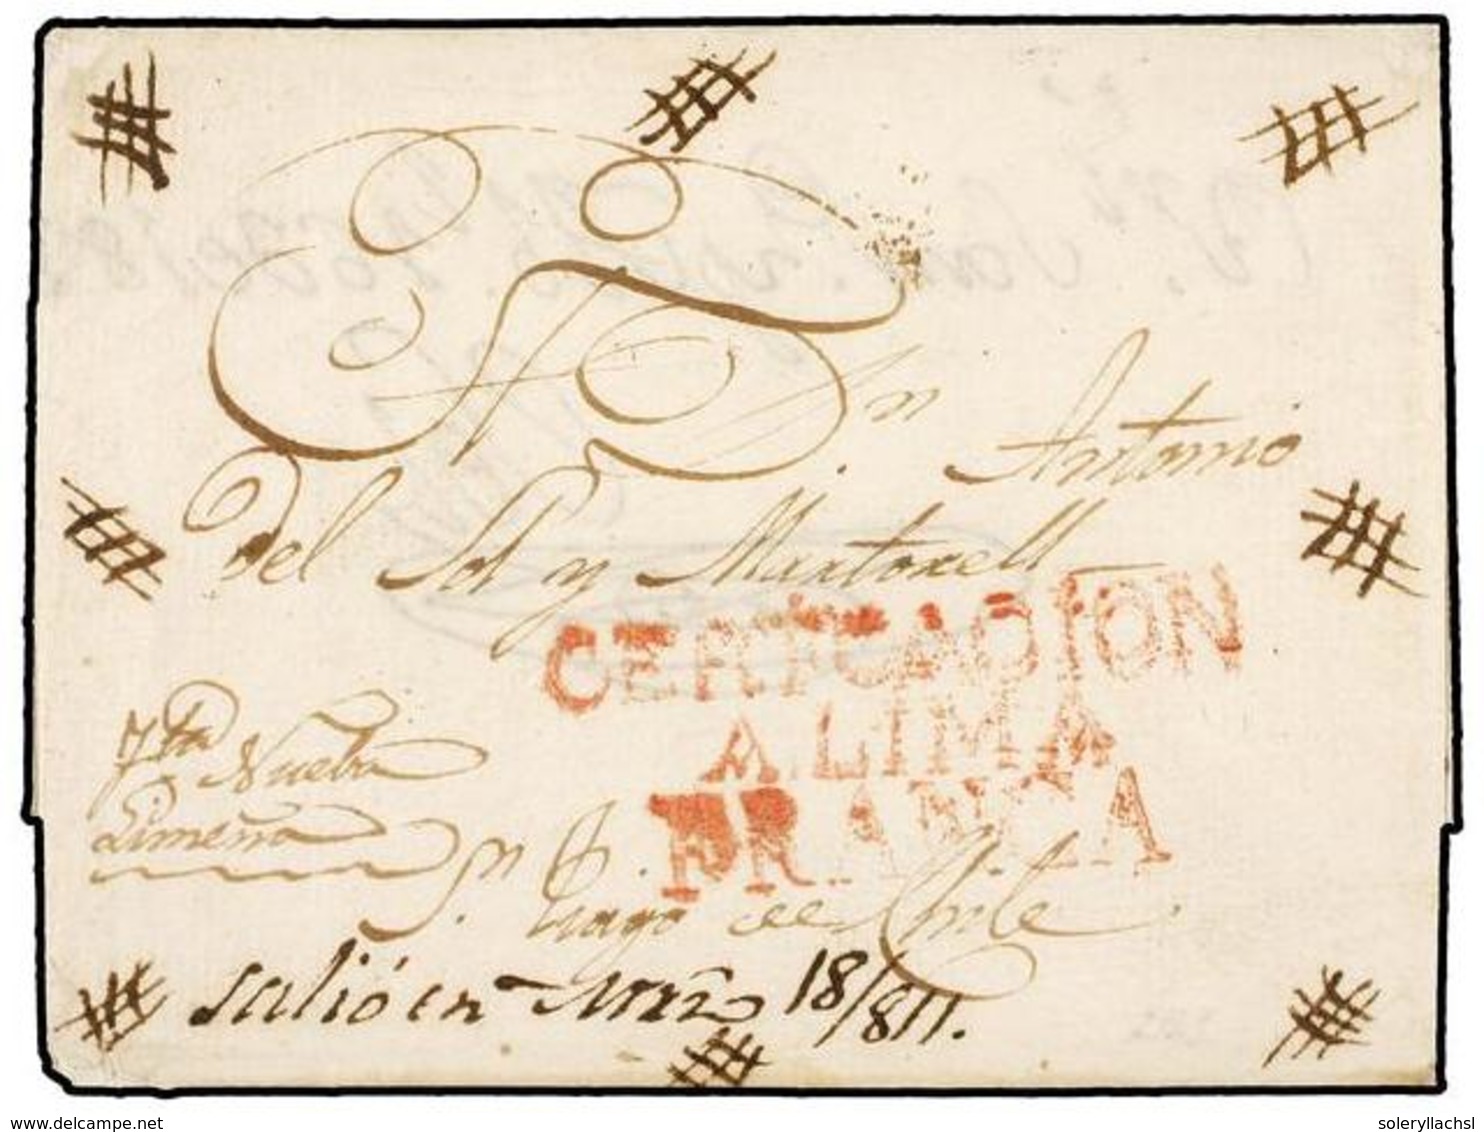 A Dn Antonio
Del Sol y Martorell
CERTFCACION
A LIMA
FRANCA
Nueba
Limeña
Sn
tiago de Chile
salió en Marzo 18/811.
delcampe.net
soleryllachsl